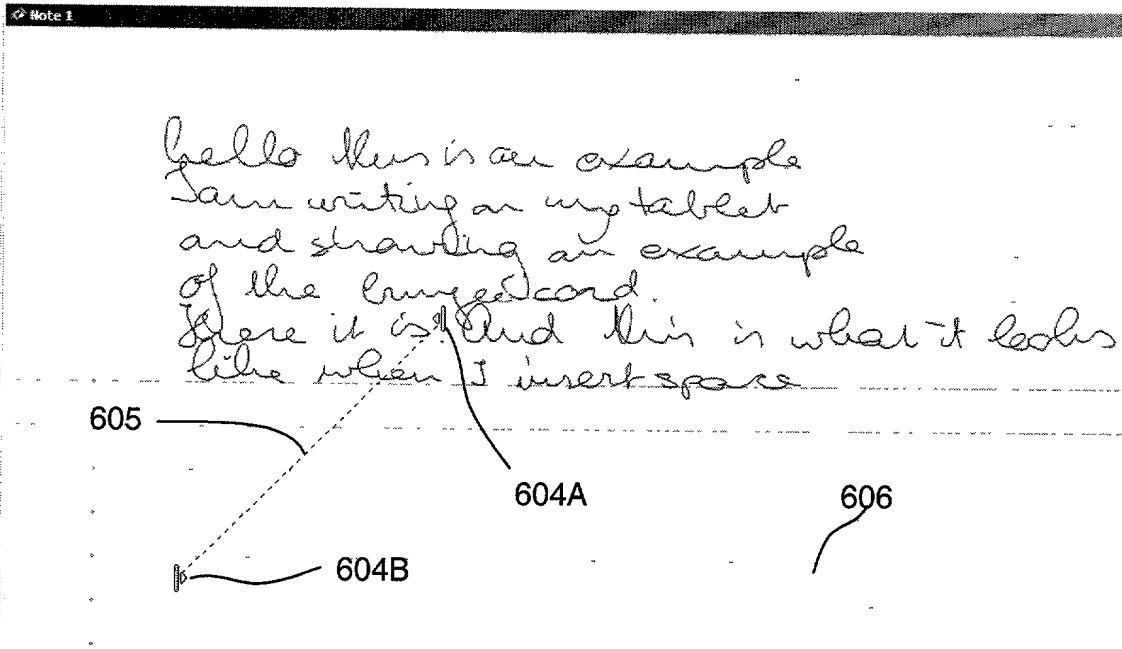 Note 1
hello this is an example
I am writing on my tablet
and showing an example
of the cord.
Here it is. And this is what it looks
like when I insert space
605
604A
606
604B